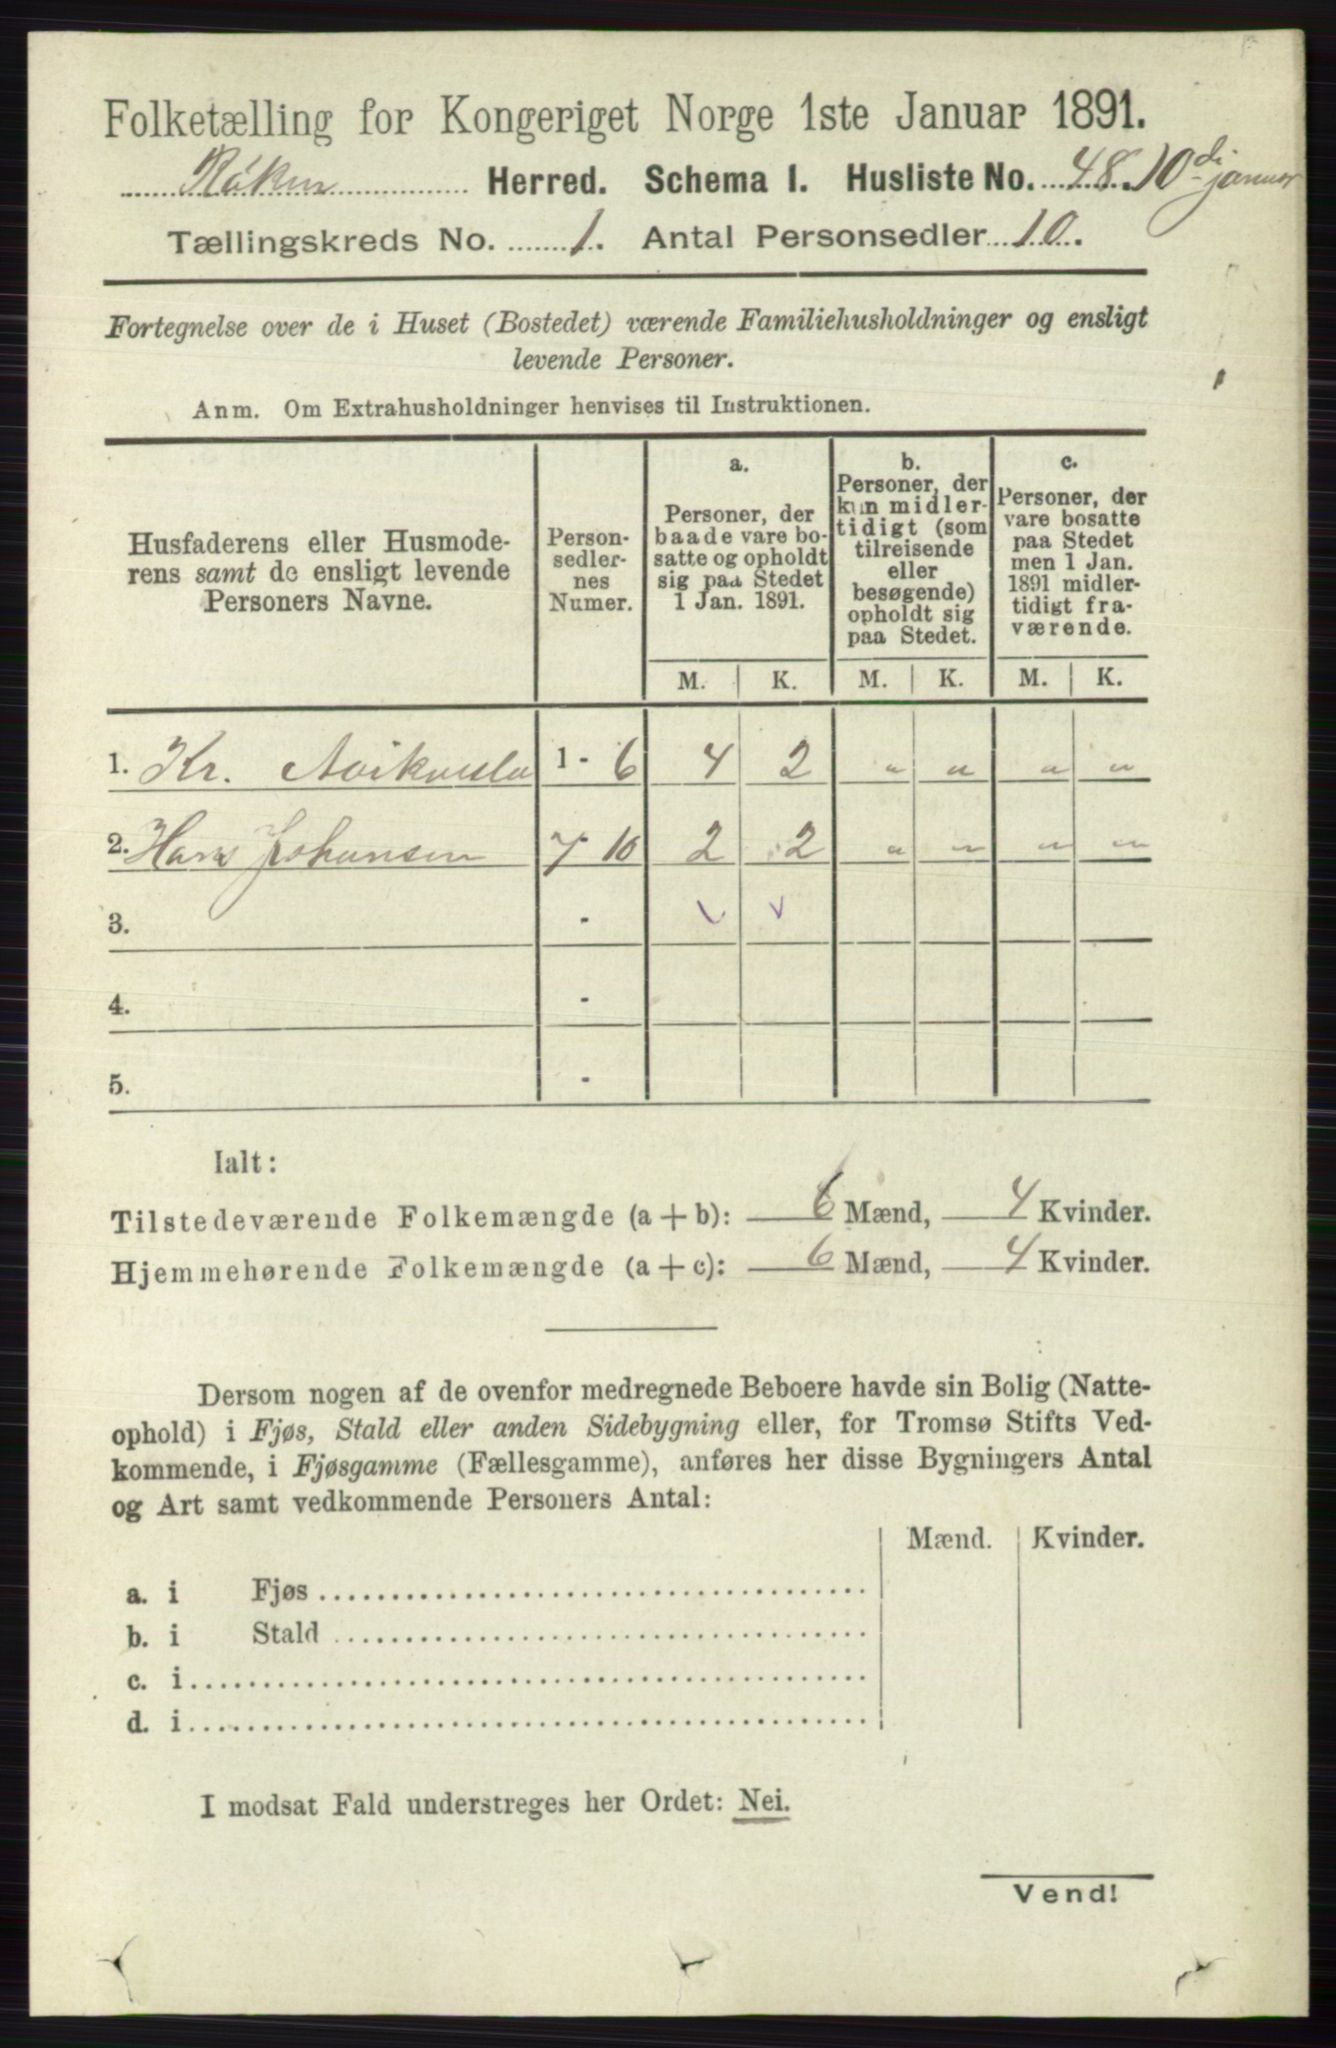 Folketælling for Kongeriget Norge 1ste Januar 1891.
Røken Herred. Schema 1. Husliste No. 48. 10di januar
Tællingskreds No. 1. Antal Personsedler 10.
Fortegnelse over de i Huset (Bostedet) værende Familiehusholdninger og ensligt
levende Personer.
Anm. Om Extrahusholdninger henvises til Instruktionen.
Husfaderens eller Husmode-
rens samt de ensligt levende
Personers Navne.
Person-
sedler-
nes
Numer.
a.
Personer, der
baade vare bo-
satte og opholdt
sig paa Stedet
1 Jan. 1891.
b.
Personer, der
kun midler-
tidigt (som
tilreisende
eller
besøgende)
opholdt sig
paa Stedet.
c.
Personer, der
vare bosatte
paa Stedet
men 1 Jan.
1891 midler-
tidigt fra-
værende.
M. K. M. K. M. K.
1. Kr. 1 - 6 4 2 " " " "
2. Hans Johansen 7 10 2 2 " " " "
3. -
4. -
5. -
Ialt:
Tilstedeværende Folkemængde (a + b): 6 Mænd, 4 Kvinder.
Hjemmehørende Folkemængde (a + c): 6 Mænd, 4 Kvinder.
Dersom nogen af de ovenfor medregnede Beboere havde sin Bolig (Natte-
ophold) i Fjøs, Stald eller anden Sidebygning eller, for Tromsø Stifts Ved-
kommende, i Fjøsgamme (Fællesgamme), anføres her disse Bygningers Antal
og Art samt vedkommende Personers Antal:
Mænd. Kvinder.
a. i Fjøs
b. i Stald
c. i
d. i
I modsat Fald understreges her Ordet: Nei.
Vend!